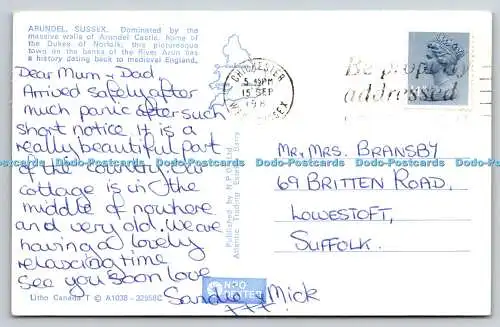 ARUNDEL, SUSSEX. Dominated by the
massive walls of Arundel Castle, home of
the Dukes of Norfolk, this picturesque
town on the banks of the River Arun has
a history dating back to medieval England.
Dear Mum & Dad
Arrived safely after
much panic after such
short notice. It is a
really beautiful part
of the country. Our
cottage is in the
middle of nowhere
and very old. We are
having a lovely
relaxing time
see you soon love
Sandie & Mick
xxx
Litho Canada T © A1038 - 32958C
Published by N.P.O. Ltd
CHICHESTER
5.45PM
15 SEP
198
W. SUSSEX
Be properly
addressed
MR, MRS. BRANSBY
69 BRITTEN ROAD,
LOWESTOFT,
SUFFOLK.
NPO
Dodo-Postcards Dodo-Postcards Dodo-Postcards Dodo-Postcards Dodo-Postcards